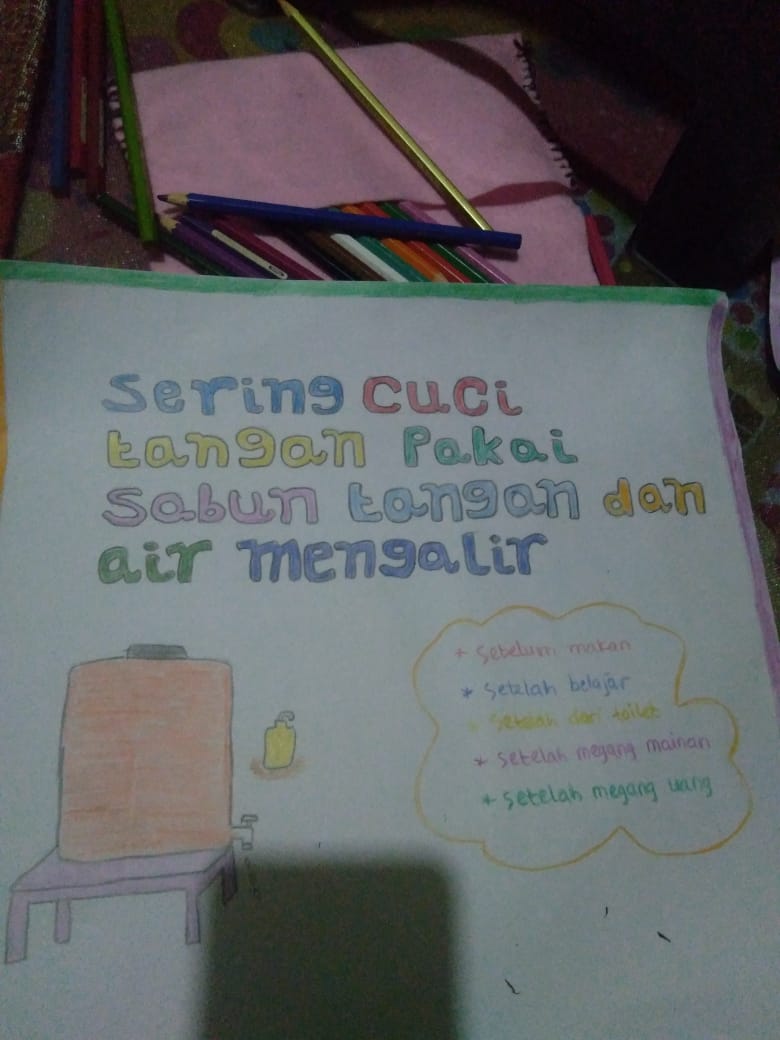 Sering cuci
tangan Pakai
Sabun tangan dan
air mengalir
* Sebelum makan
* Setelah belajar
* Setelah dari toilet
* Setelah megang mainan
* Setelah megang uang